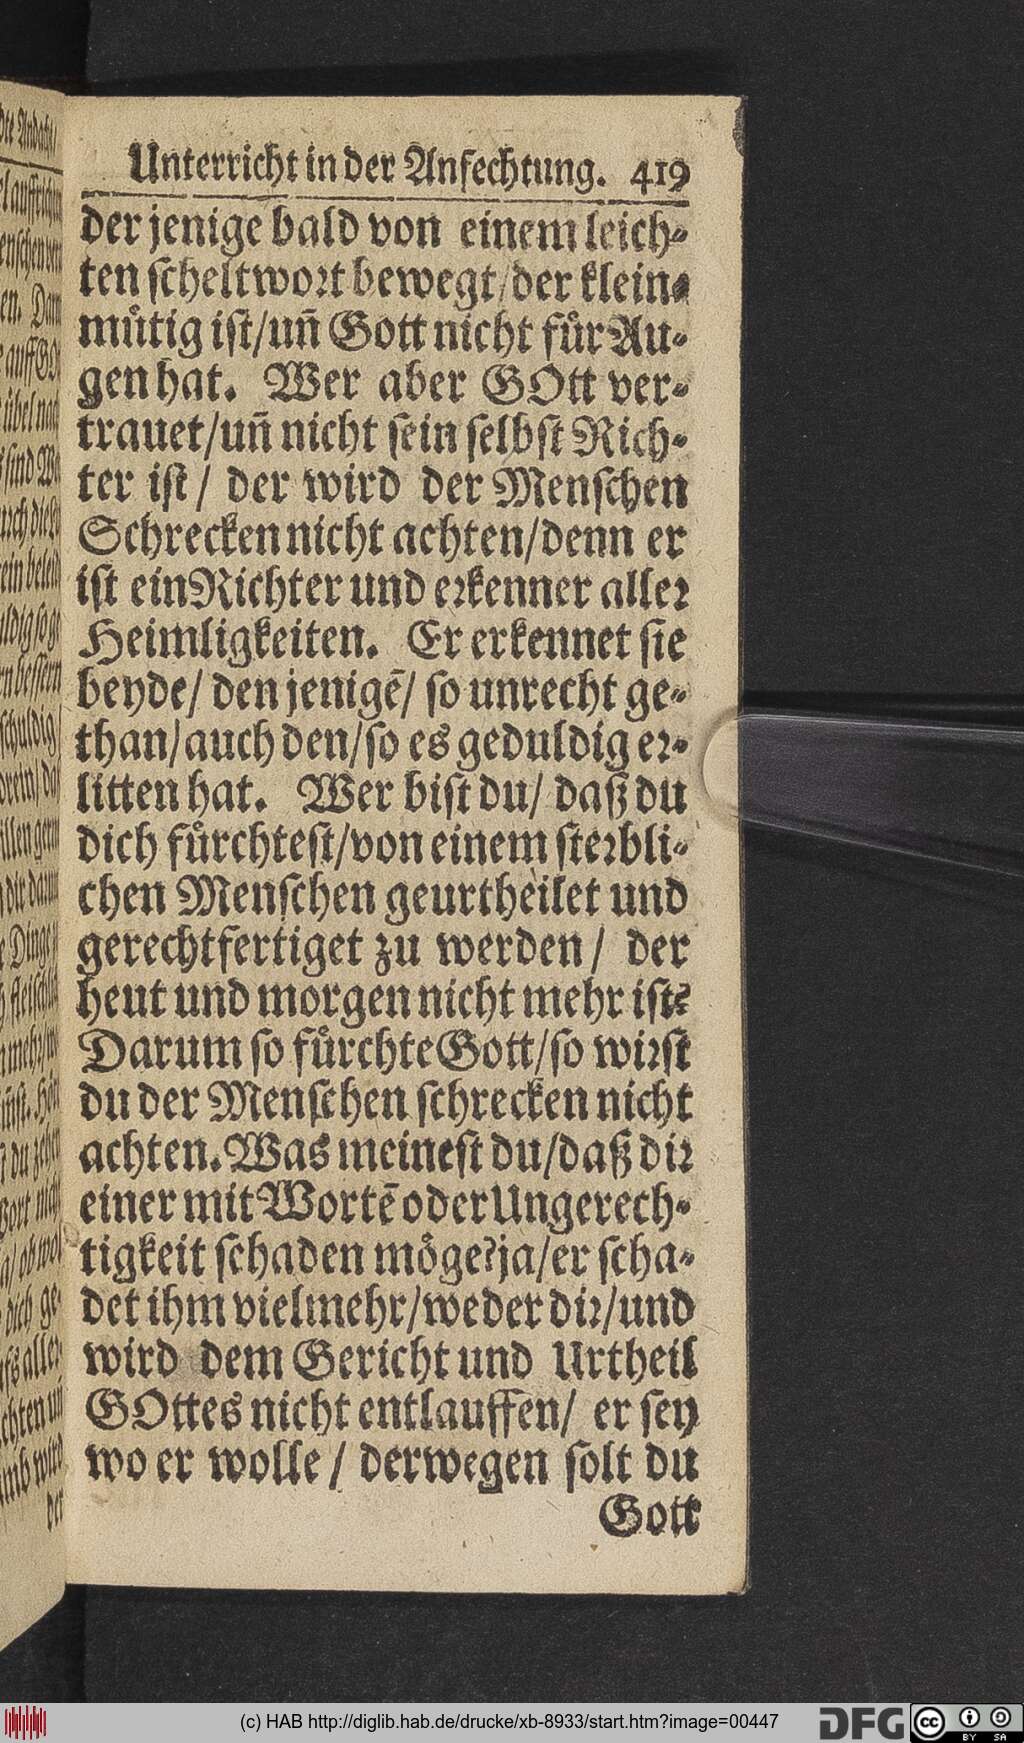 Unterricht in der Anfechtung. 419
der jenige bald von einem leich-
ten scheltwort bewegt/der klein-
muͤtig ist/uñ Gott nicht fuͤr Au-
gen hat. Wer aber GOtt ver-
trauet/uñ nicht sein selbst Rich-
ter ist/ der wird der Menschen
Schrecken nicht achten/denn er
ist ein Richter und erkenner aller
Heimligkeiten. Er erkennet sie
beyde/ den jenigē/ so unrecht ge-
than/auch den/so es geduldig er-
litten hat. Wer bist du/ daß du
dich fuͤrchtest/von einem sterbli-
chen Menschen geurtheilet und
gerechtfertiget zu werden/ der
heut und morgen nicht mehr ist?
Darum so fuͤrchte Gott/so wirst
du der Menschen schrecken nicht
achten. Was meinest du/daß dir
einer mit Wortē oder Ungerech-
tigkeit schaden moͤge? ja/er scha-
det ihm vielmehr/weder dir/und
wird dem Gericht und Urtheil
GOttes nicht entlauffen/ er sey
wo er wolle/ derwegen solt du
Gott
(c) HAB http://diglib.hab.de/drucke/xb-8933/start.htm?image=00447
DFG
cc BY SA